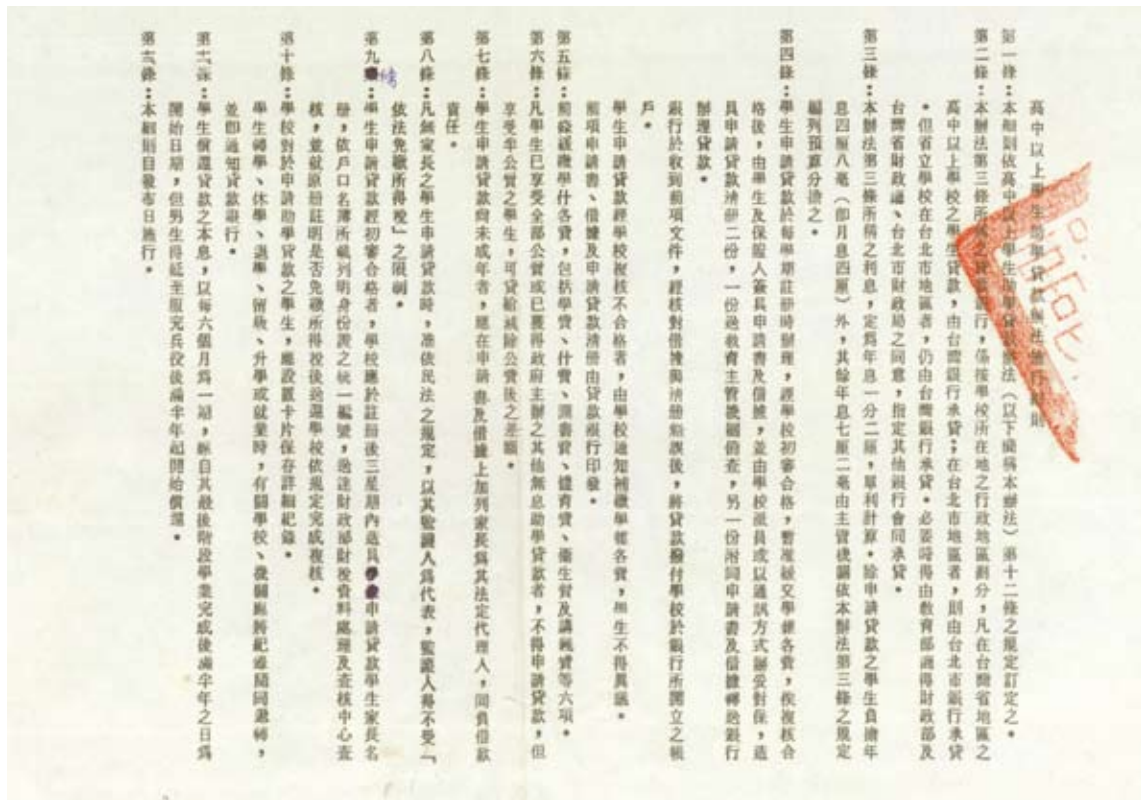 高中以上學生助學貸款辦法施行細則
第一條：本細則依高中以上學生助學貸款辦法（以下簡稱本辦法）第十二條之規定訂定之。
第二條：本辦法第三條所稱之貸款銀行，係按學校所在地之行政地區劃分，凡在台灣省地區之
高中以上學校之學生貸款，由台灣銀行承貸；在台北市地區者，則由台北市銀行承貸
。但省立學校在台北市地區者，仍由台灣銀行承貸。必要時得由教育部商得財政部及
台灣省財政廳、台北市財政局之同意，指定其他銀行會同承貸。
第三條：本辦法第三條所稱之利息，定為年息一分二厘，單利計算。除申請貸款之學生負擔年
息四厘八毫（即月息四厘）外，其餘年息七厘二毫由主管機關依本辦法第三條之規定
編列預算分擔之。
第四條：學生申請貸款於每學期註冊時辦理，經學校初審合格，暫准緩交學雜各費，俟複核合
格後，由學生及保證人簽具申請書及借據，並由學校派員或以通訊方式辦妥對保，造
具申請貸款清冊二份，一份送教育主管機關備查，另一份附同申請書及借據轉送銀行
辦理貸款。
銀行於收到前項文件，經核對借據與清冊無誤後，將貸款撥付學校於銀行所開立之帳
戶。
學生申請貸款經學校複核不合格者，由學校通知補繳學雜各費，學生不得異議。
前項申請書、借據及申請貸款清冊由貸款銀行印發。
第五條：前條緩繳學什各費，包括學費、什費、圖書費、體育費、衛生費及講義費等六項。
第六條：凡學生已享受全部公費或已獲得政府主辦之其他無息助學貸款者，不得申請貸款，但
享受半公費之學生，可貸給減除公費後之差額。
第七條：學生申請貸款尚未成年者，應在申請書及借據上加列家長為其法定代理人，同負償款
責任。
第八條：凡無家長之學生申請貸款時，准依民法之規定，以其監護人為代表，監護人得不受「
依法免繳所得稅」之限制。
第九條：學生申請貸款經初審合格者，學校應於註冊後三星期內造具申請貸款學生家長名
冊，依戶口名簿所載列明身份證之統一編號，送達財政部財稅資料處理及查核中心查
核，並就原冊註明是否免繳所得稅後送還學校依規定完成複核。
第十條：學校對於申請助學貸款之學生，應設置卡片保存詳細紀錄。
學生轉學、休學、退學、留級、升學或就業時，有關學校、機關應將紀錄隨同遷轉，
並即通知貸款銀行。
第十一條：學生償還貸款之本息，以每六個月為一期，應自其最後階段學業完成後滿半年之日為
開始日期，但男生得延至服完兵役後滿半年起開始償還。
第十二條：本細則自發布日施行。